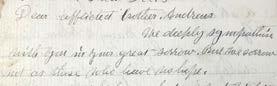 Dear afflicted Brother Andrews
We deeply sympathize
with you in your great sorrow. But we sorrow
not as those who have no hope.